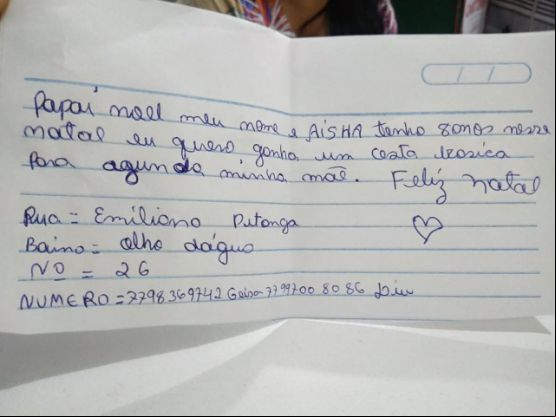 / /
Papai noel meu nome e AiSHA tenho 8 anos nesse
natal eu quero ganha um cesta bazica
Para agunda minha mãe. Feliz natal
Rua = Emiliano Putonga
Bairro = olho dágua
Nº = 26
NUMERO = 7798369742 Geisa 77997008086